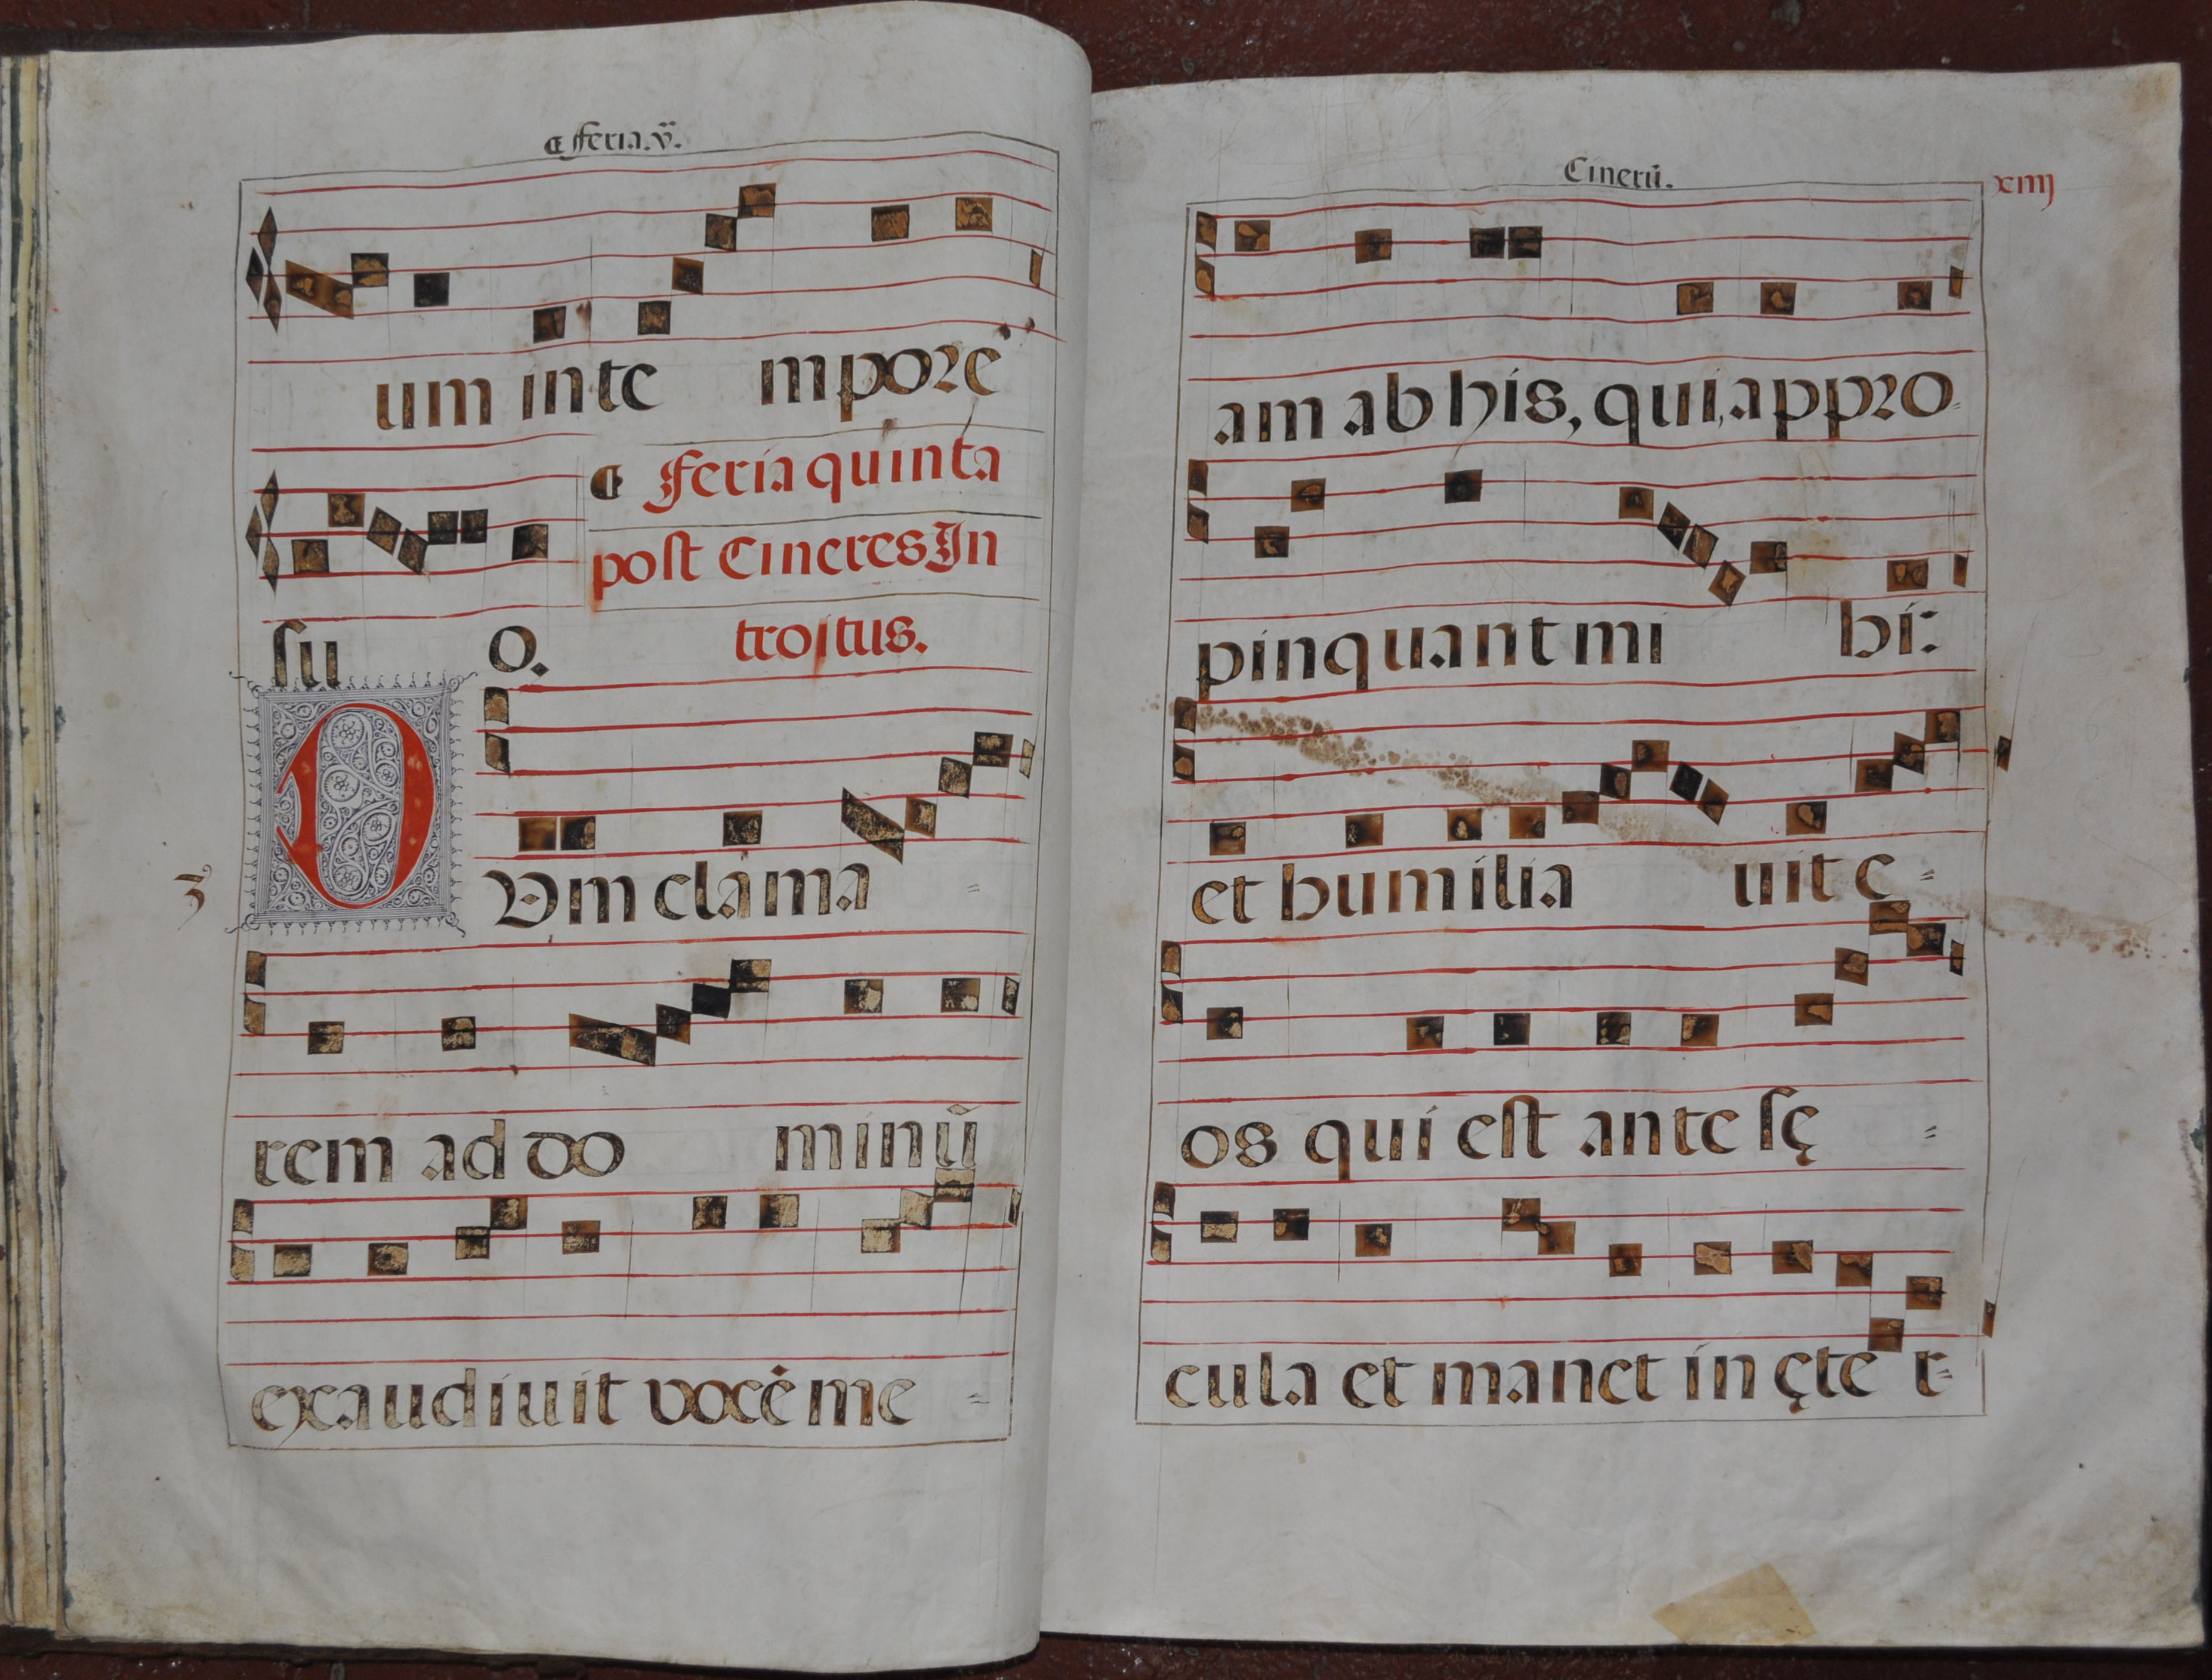 ¶ Feria.v.
um in te mpore
¶ Feria quinta
post Cineres In
troitus.
su o.
3
DVm clama=
rem ad do minū
exaudiuit vocē me=
Cinerū.
xiiij
am ab his, qui appro
pinquant mi hi:
et humilia uit e=
os qui est ante sę=
cula et manet in ęte r=